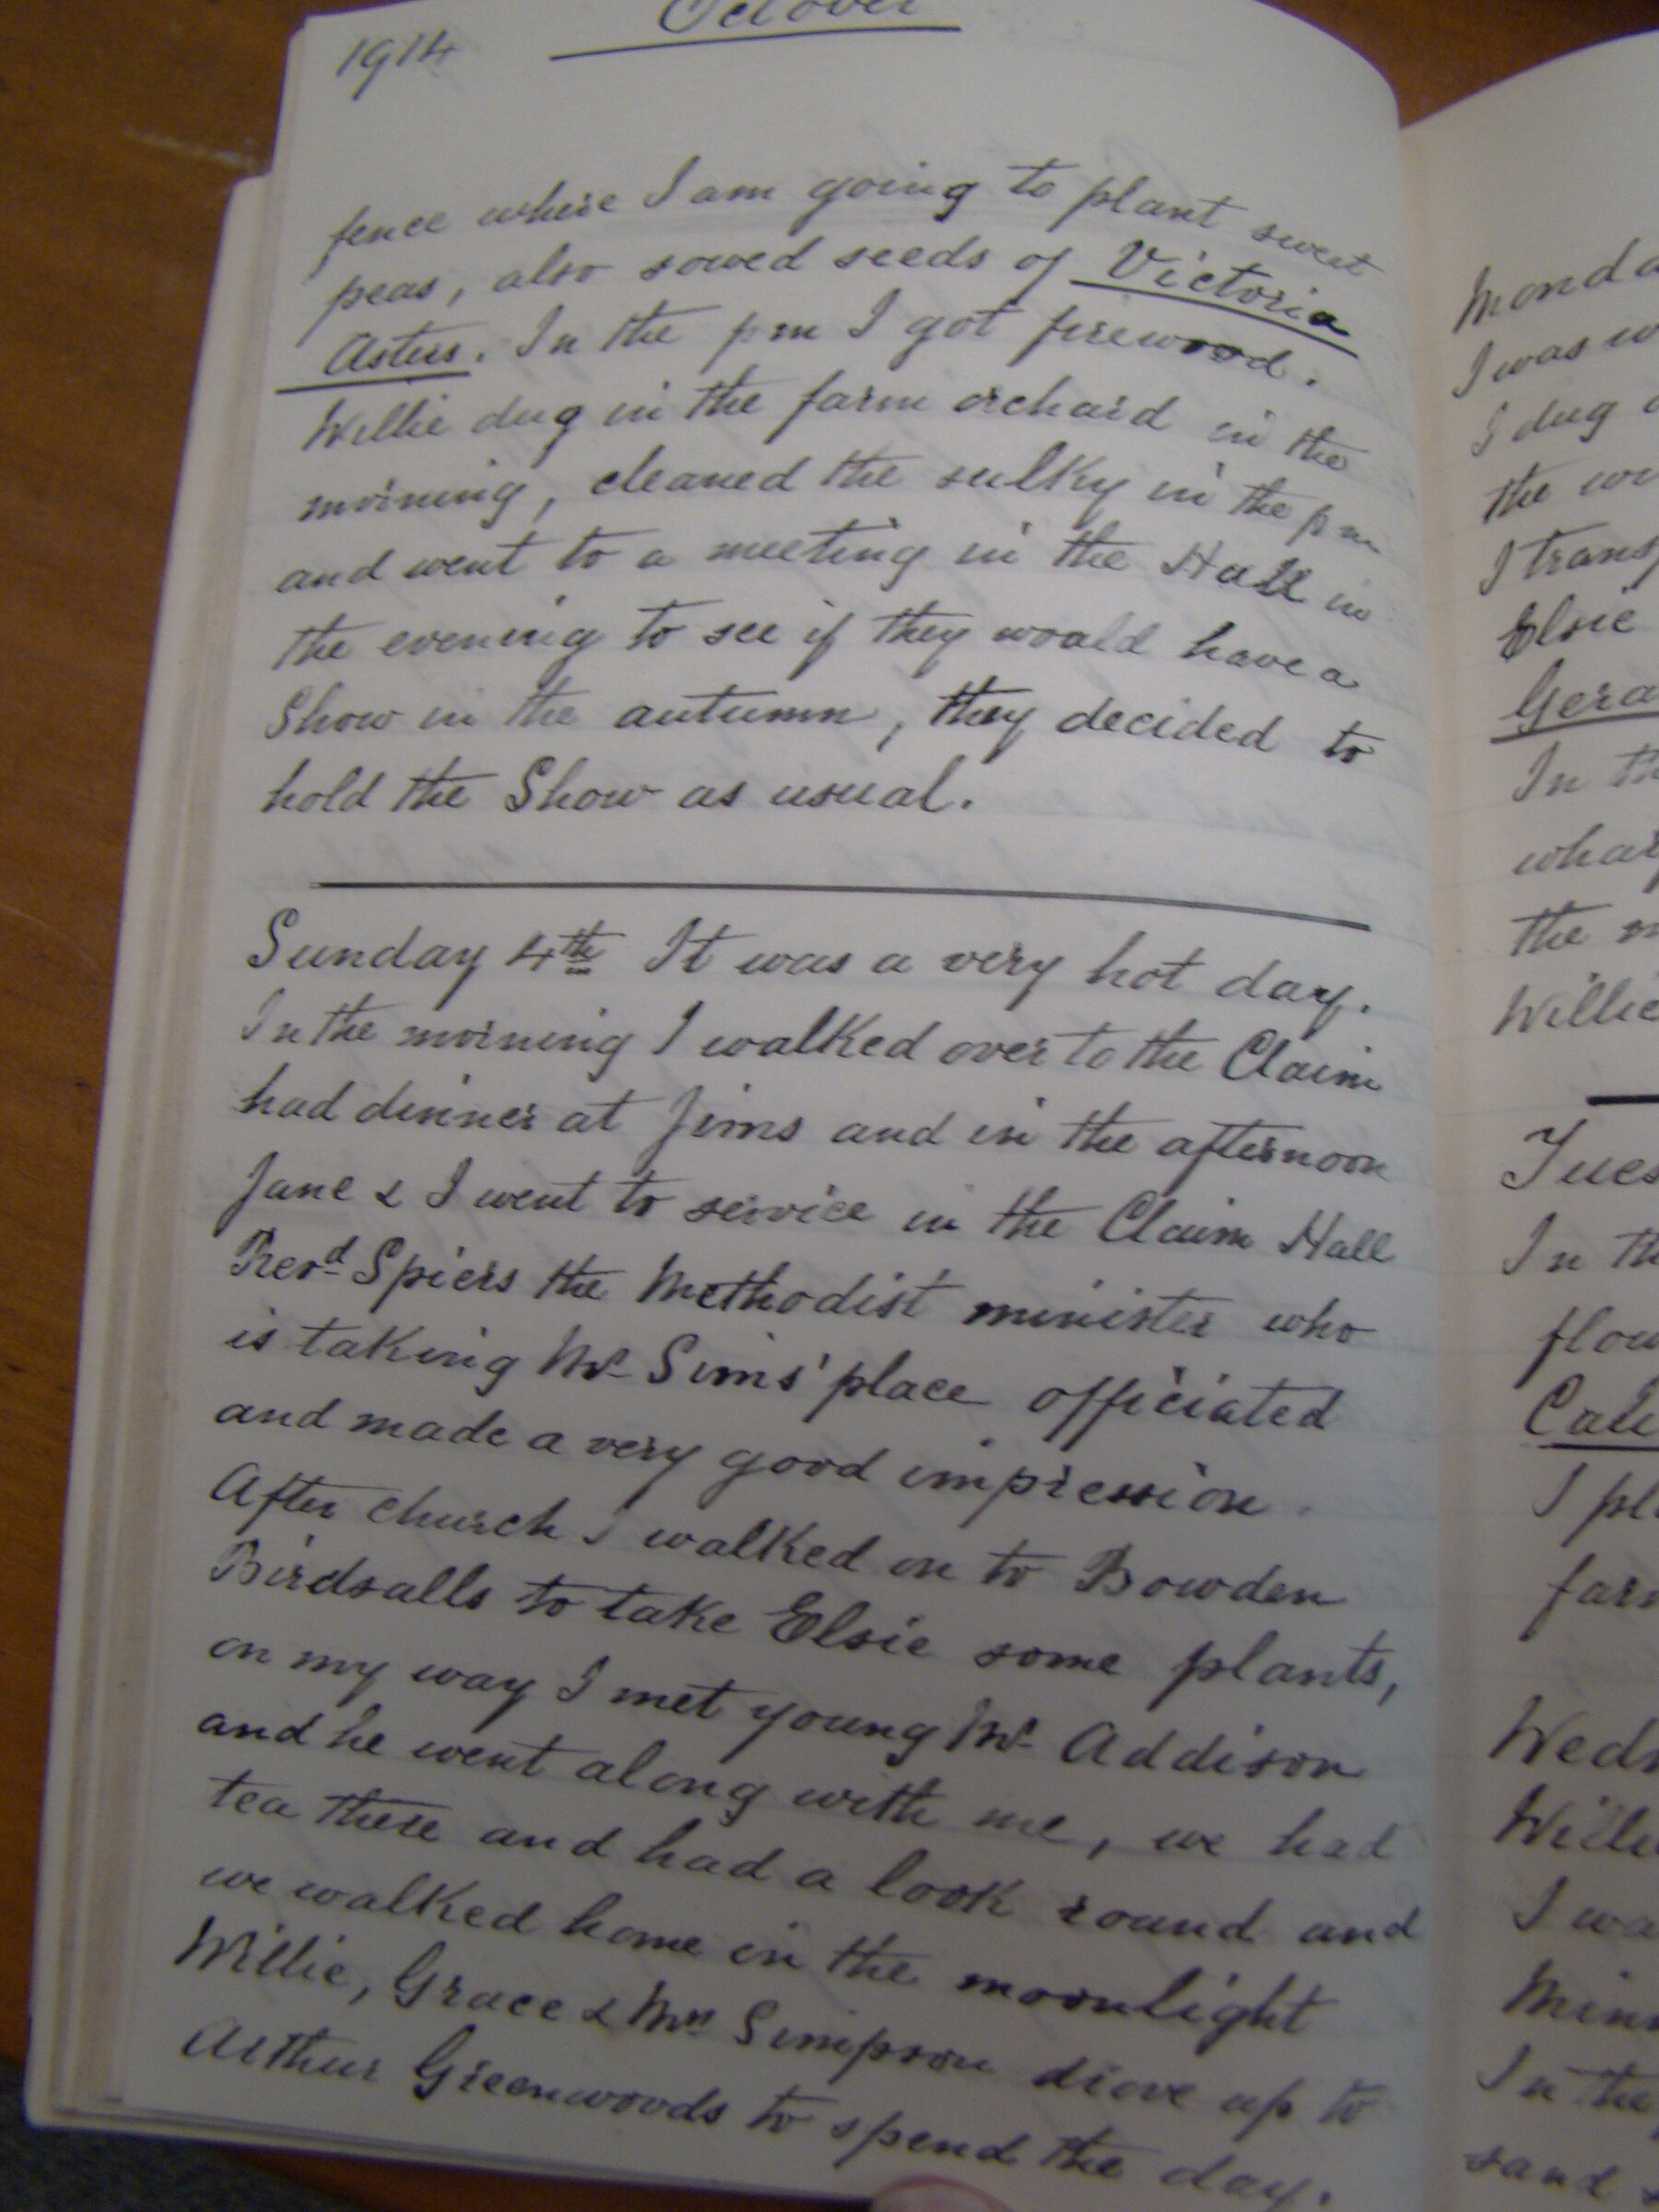 1914 October
fence where I am going to plant sweet
peas, also sowed seeds of Victoria
Asters. In the pm I got firewood.
Willie dug in the farm orchard in the
morning, cleaned the sulky in the pm
and went to a meeting in the Hall in
the evening to see if they would have a
Show in the autumn, they decided to
hold the Show as usual.
Sunday 4th It was a very hot day.
In the morning I walked over to the Claim
had dinner at Jims and in the afternoon
Jane & I went to service in the Claim Hall
Revd Spiers the Methodist minister who
is taking Mr Sims' place officiated
and made a very good impression.
After church I walked on to Bowden
Birdsalls to take Elsie some plants,
on my way I met young Mr Addison
and he went along with me, we had
tea there and had a look round and
we walked home in the moonlight
Willie, Grace & Mrs Simpson drove up to
Arthur Greenwoods to spend the day.
Monda
I was w
I dug
the
I trans
Elsie
Gera
In th
whar
the m
Willie
Tues
In th
flow
I pl
farm
Wedn
Willi
I wa
In the
sand